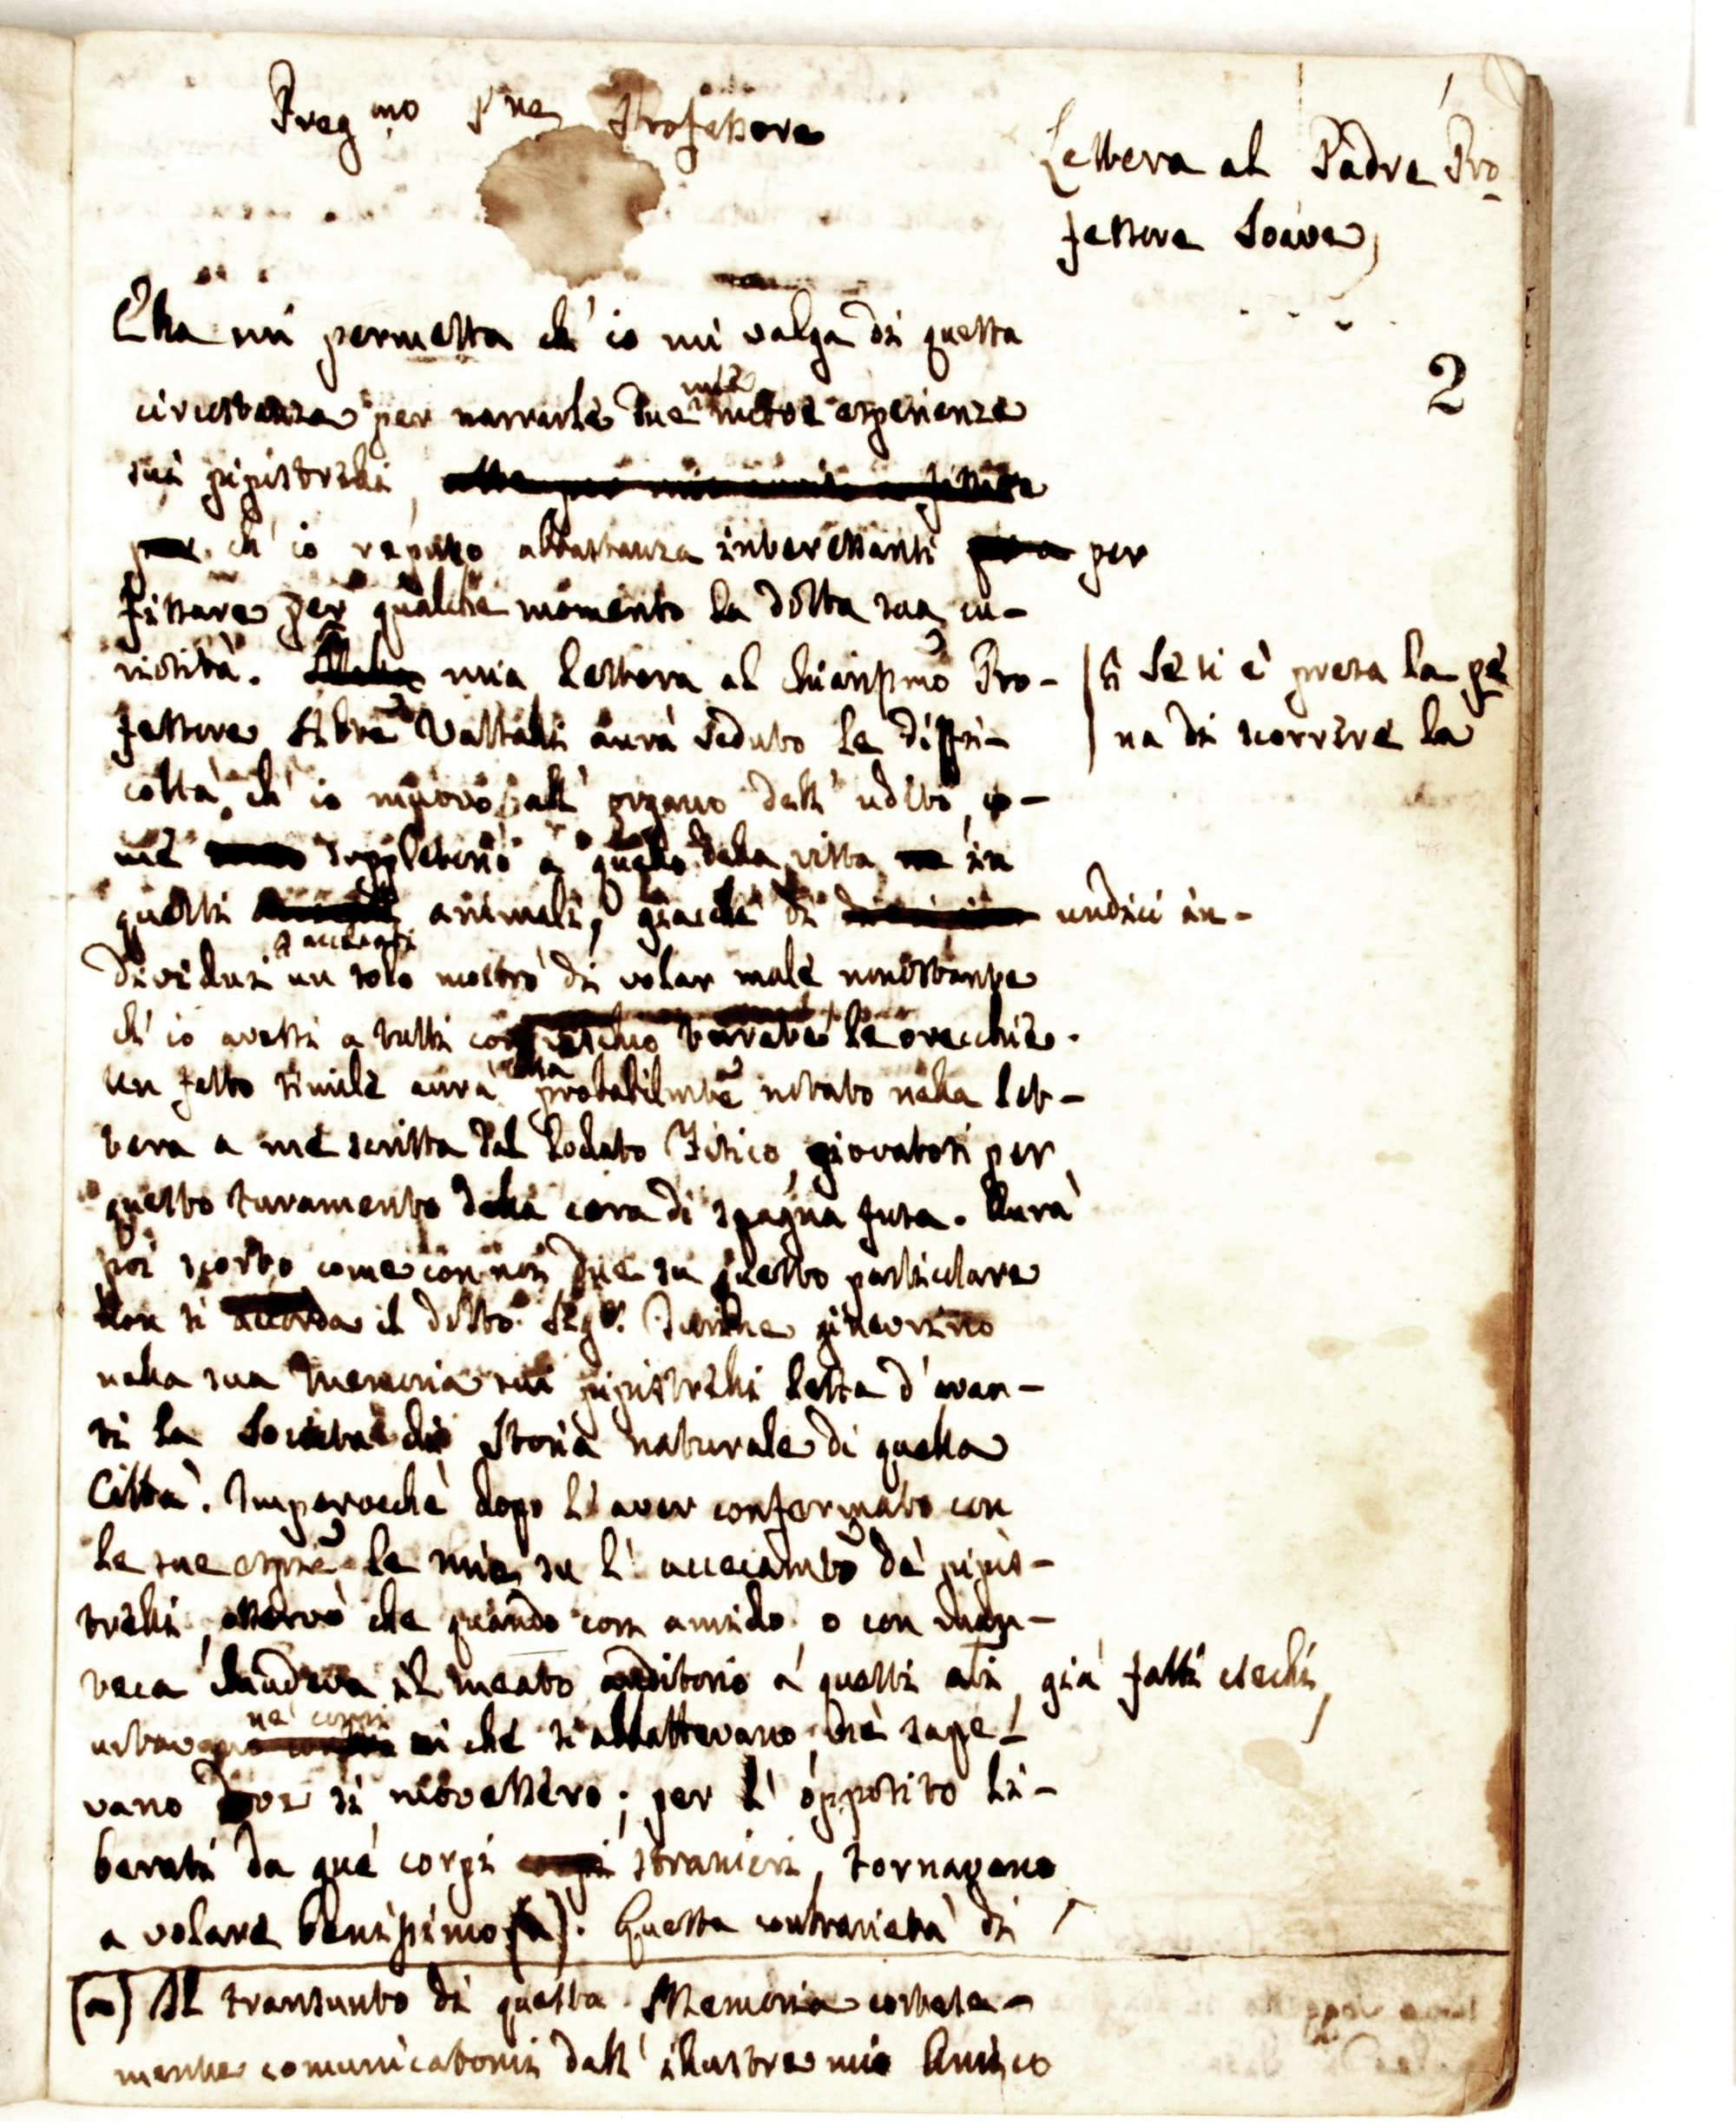 Preg.mo P.re Professore
Lettera al Padre Pro-
fessore Soave
2
Ella mi permetta ch'io mi valga di questa
circostanza per narrarle due mie nuove esperienze
sui pipistrelli,
ch'io reputo abbastanza interessanti per
fissare per qualche momento la dotta sua cu-
riosità. mia lettera al chiarissmo Pro-
si Se si è presa la pe
na di scorrere la
fessore Abte Vassalli avrà veduto le diffi-
coltà, ch'io muovo all'organo dell'udito, co-
me suppletorio a quello della vista in
questi animali, giacché di undici in-
dividui acciecati un solo mostrò di volar male nonostante
ch'io avessi a tutti con vischio turate le orecchie.
Un fatto simile avrà ella probabilmte notato nella let-
tera a me scritta dal lodato Fisico, giovatosi per
questo turamento della cera di spagna fusa. Avrà
poi scorto come con noi due su questo particolare
non si accorda il dotto Sigr. Jurine ginevrino
nella sua Memoria sui pipistrelli letta d'avan-
ti la Società di Storia naturale di quella
Città. Imperocché dopo l'aver confermato con
le sue esprze le mie su l'accecamto de' pipis-
trelli, osservò che quando con amido o con
chiudeva il meato auditorio a questi ali, già fatti ciechi,
urtavano ne' corpi in che si abbattevano, né sape-
vano dove si movessero; per l'opposito li-
berati da que' corpi stranieri, tornavano
a volare benissimo (a). Questa contrarietà di
(a) Il transunto di questa Memoria cortese-
mente comunicatomi dall'illustre mio Amico